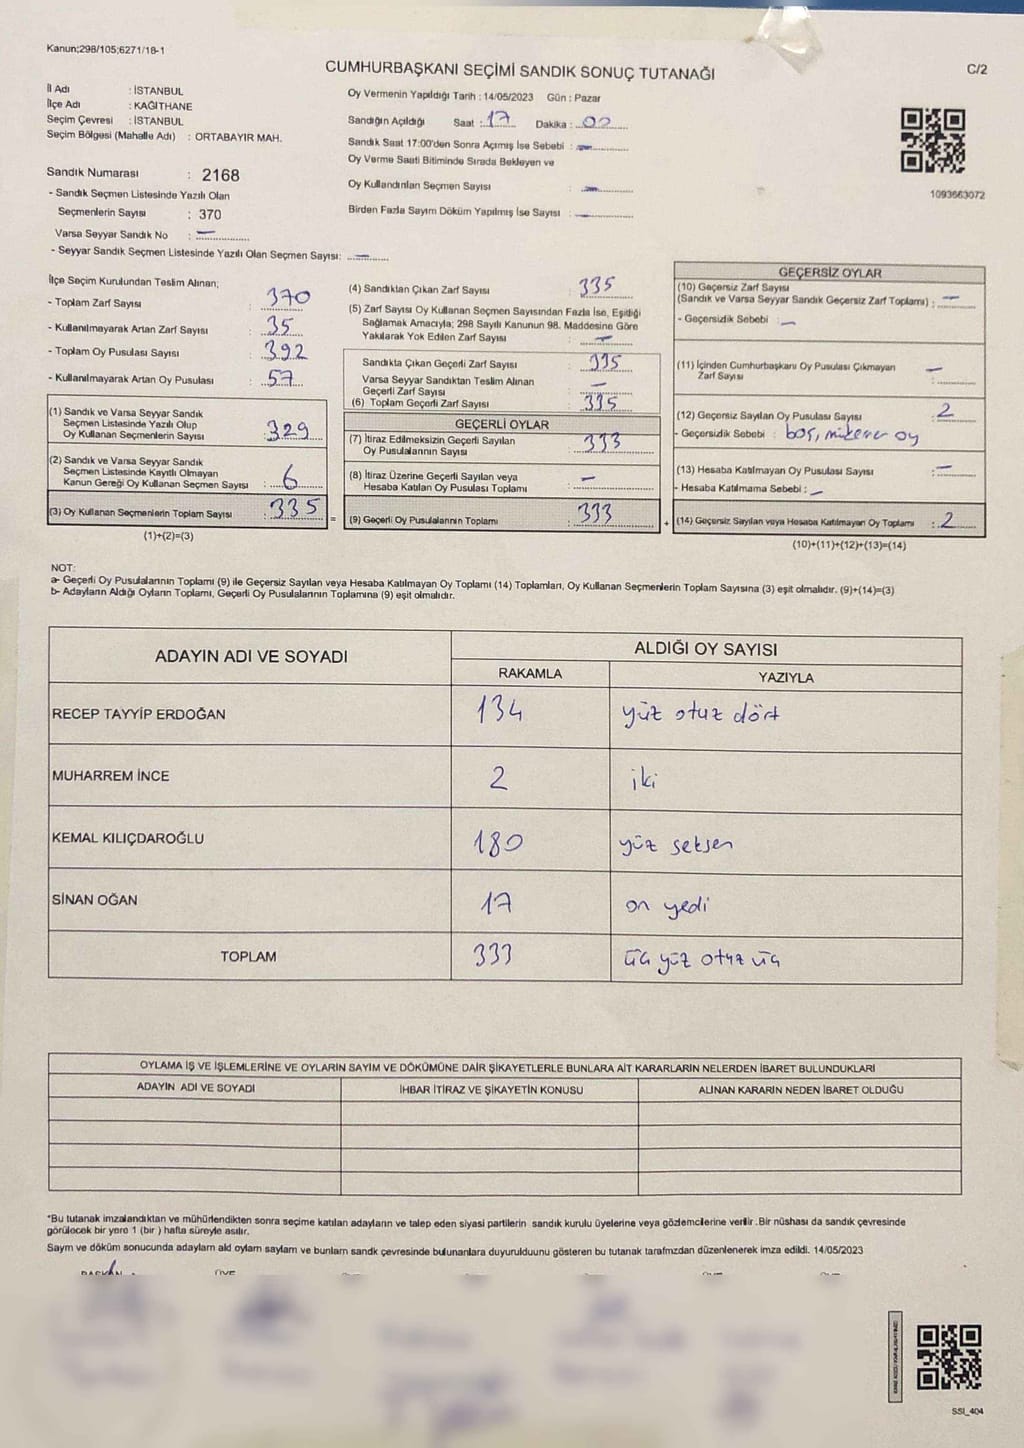 Kanun;298/105;6271/18-1
CUMHURBAŞKANI SEÇİMİ SANDIK SONUÇ TUTANAĞI
C/2
İl Adı : İSTANBUL
İlçe Adı : KAĞITHANE
Seçim Çevresi : İSTANBUL
Seçim Bölgesi (Mahalle Adı) : ORTABAYIR MAH.
Sandık Numarası : 2168
- Sandık Seçmen Listesinde Yazılı Olan
Seçmenlerin Sayısı : 370
Varsa Seyyar Sandık No : —
- Seyyar Sandık Seçmen Listesinde Yazılı Olan Seçmen Sayısı: —
Oy Vermenin Yapıldığı Tarih : 14/05/2023 Gün : Pazar
Sandığın Açıldığı Saat : 17 Dakika : 00
Sandık Saat 17:00'den Sonra Açımış İse Sebebi : —
Oy Verme Saati Bitiminde Sırada Bekleyen ve
Oy Kullandırılan Seçmen Sayısı : —
Birden Fazla Sayım Döküm Yapılmış İse Sayısı : —
1093663072
İlçe Seçim Kurulundan Teslim Alınan;
- Toplam Zarf Sayısı : 370
- Kullanılmayarak Artan Zarf Sayısı : 35
- Toplam Oy Pusulası Sayısı : 392
- Kullanılmayarak Artan Oy Pusulası : 57
(1) Sandık ve Varsa Seyyar Sandık
Seçmen Listesinde Yazılı Olup
Oy Kullanan Seçmenlerin Sayısı : 329
(2) Sandık ve Varsa Seyyar Sandık
Seçmen Listesinde Kayıtlı Olmayan
Kanun Gereği Oy Kullanan Seçmen Sayısı : 6
(3) Oy Kullanan Seçmenlerin Toplam Sayısı : 335
(1)+(2)=(3)
=
(4) Sandıktan Çıkan Zarf Sayısı : 335
(5) Zarf Sayısı Oy Kullanan Seçmen Sayısından Fazla İse, Eşitliği
Sağlamak Amacıyla; 298 Sayılı Kanunun 98. Maddesine Göre
Yakılarak Yok Edilen Zarf Sayısı : —
Sandıkta Çıkan Geçerli Zarf Sayısı : 335
Varsa Seyyar Sandıktan Teslim Alınan
Geçerli Zarf Sayısı : —
(6) Toplam Geçerli Zarf Sayısı : 335
GEÇERLİ OYLAR
(7) İtiraz Edilmeksizin Geçerli Sayılan
Oy Pusulasının Sayısı : 333
(8) İtiraz Üzerine Geçerli Sayılan veya
Hesaba Katılan Oy Pusulası Toplamı : —
(9) Geçerli Oy Pusulalarının Toplamı : 333
+
GEÇERSİZ OYLAR
(10) Geçersiz Zarf Sayısı
(Sandık ve Varsa Seyyar Sandık Geçersiz Zarf Toplamı) : —
- Geçersizlik Sebebi : —
(11) İçinden Cumhurbaşkanı Oy Pusulası Çıkmayan
Zarf Sayısı : —
(12) Geçersiz Sayılan Oy Pusulası Sayısı : 2
- Geçersizlik Sebebi : boş, mükerrer oy
(13) Hesaba Katılmayan Oy Pusulası Sayısı : —
- Hesaba Katılmama Sebebi : —
(14) Geçersiz Sayılan veya Hesaba Katılmayan Oy Toplamı : 2
(10)+(11)+(12)+(13)=(14)
NOT:
a- Geçerli Oy Pusulalarının Toplamı (9) ile Geçersiz Sayılan veya Hesaba Katılmayan Oy Toplamı (14) Toplamları, Oy Kullanan Seçmenlerin Toplam Sayısına (3) eşit olmalıdır. (9)+(14)=(3)
b- Adayların Aldığı Oyların Toplamı, Geçerli Oy Pusulalarının Toplamına (9) eşit olmalıdır.
ADAYIN ADI VE SOYADI ALDIĞI OY SAYISI
RAKAMLA YAZIYLA
RECEP TAYYİP ERDOĞAN 134 yüz otuz dört
MUHARREM İNCE 2 iki
KEMAL KILIÇDAROĞLU 180 yüz seksen
SİNAN OĞAN 17 on yedi
TOPLAM 333 üç yüz otuz üç
OYLAMA İŞ VE İŞLEMLERİNE VE OYLARIN SAYIM VE DÖKÜMÜNE DAİR ŞİKAYETLERLE BUNLARA AİT KARARLARIN NELERDEN İBARET BULUNDUKLARI
ADAYIN ADI VE SOYADI İHBAR İTİRAZ VE ŞİKAYETİN KONUSU ALINAN KARARIN NEDEN İBARET OLDUĞU
*Bu tutanak imzalandıktan ve mühürlendikten sonra seçime katılan adayların ve talep eden siyasi partilerin sandık kurulu üyelerine veya gözlemcilerine verilir .Bir nüshası da sandık çevresinde
görülecek bir yere 1 (bir ) hafta süreyle asılır.
Sayım ve döküm sonucunda adayların ald oyların sayların ve bunların sandk çevresinde bulunanlara duyurulduunu gösteren bu tutanak tarafmzdan düzenlenerek imza edildi. 14/05/2023
BAŞKAN ÜYE
SSI_404